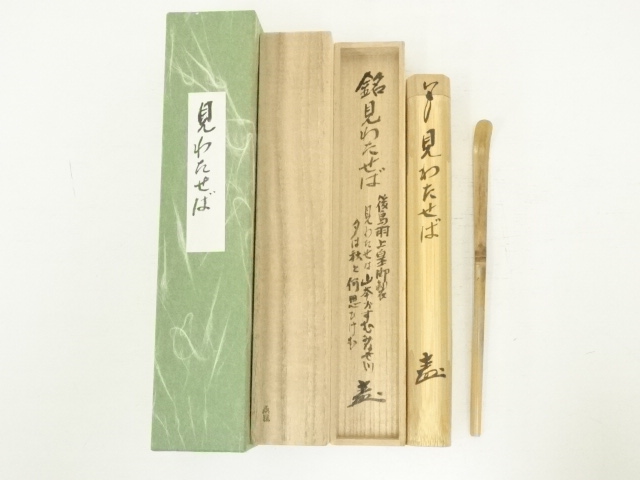 見わたせば
銘 見わたせば
後鳥羽上皇御製
見わたせは山本かすむ水無瀬川
夕は秋と何思ひけむ
見わたせば